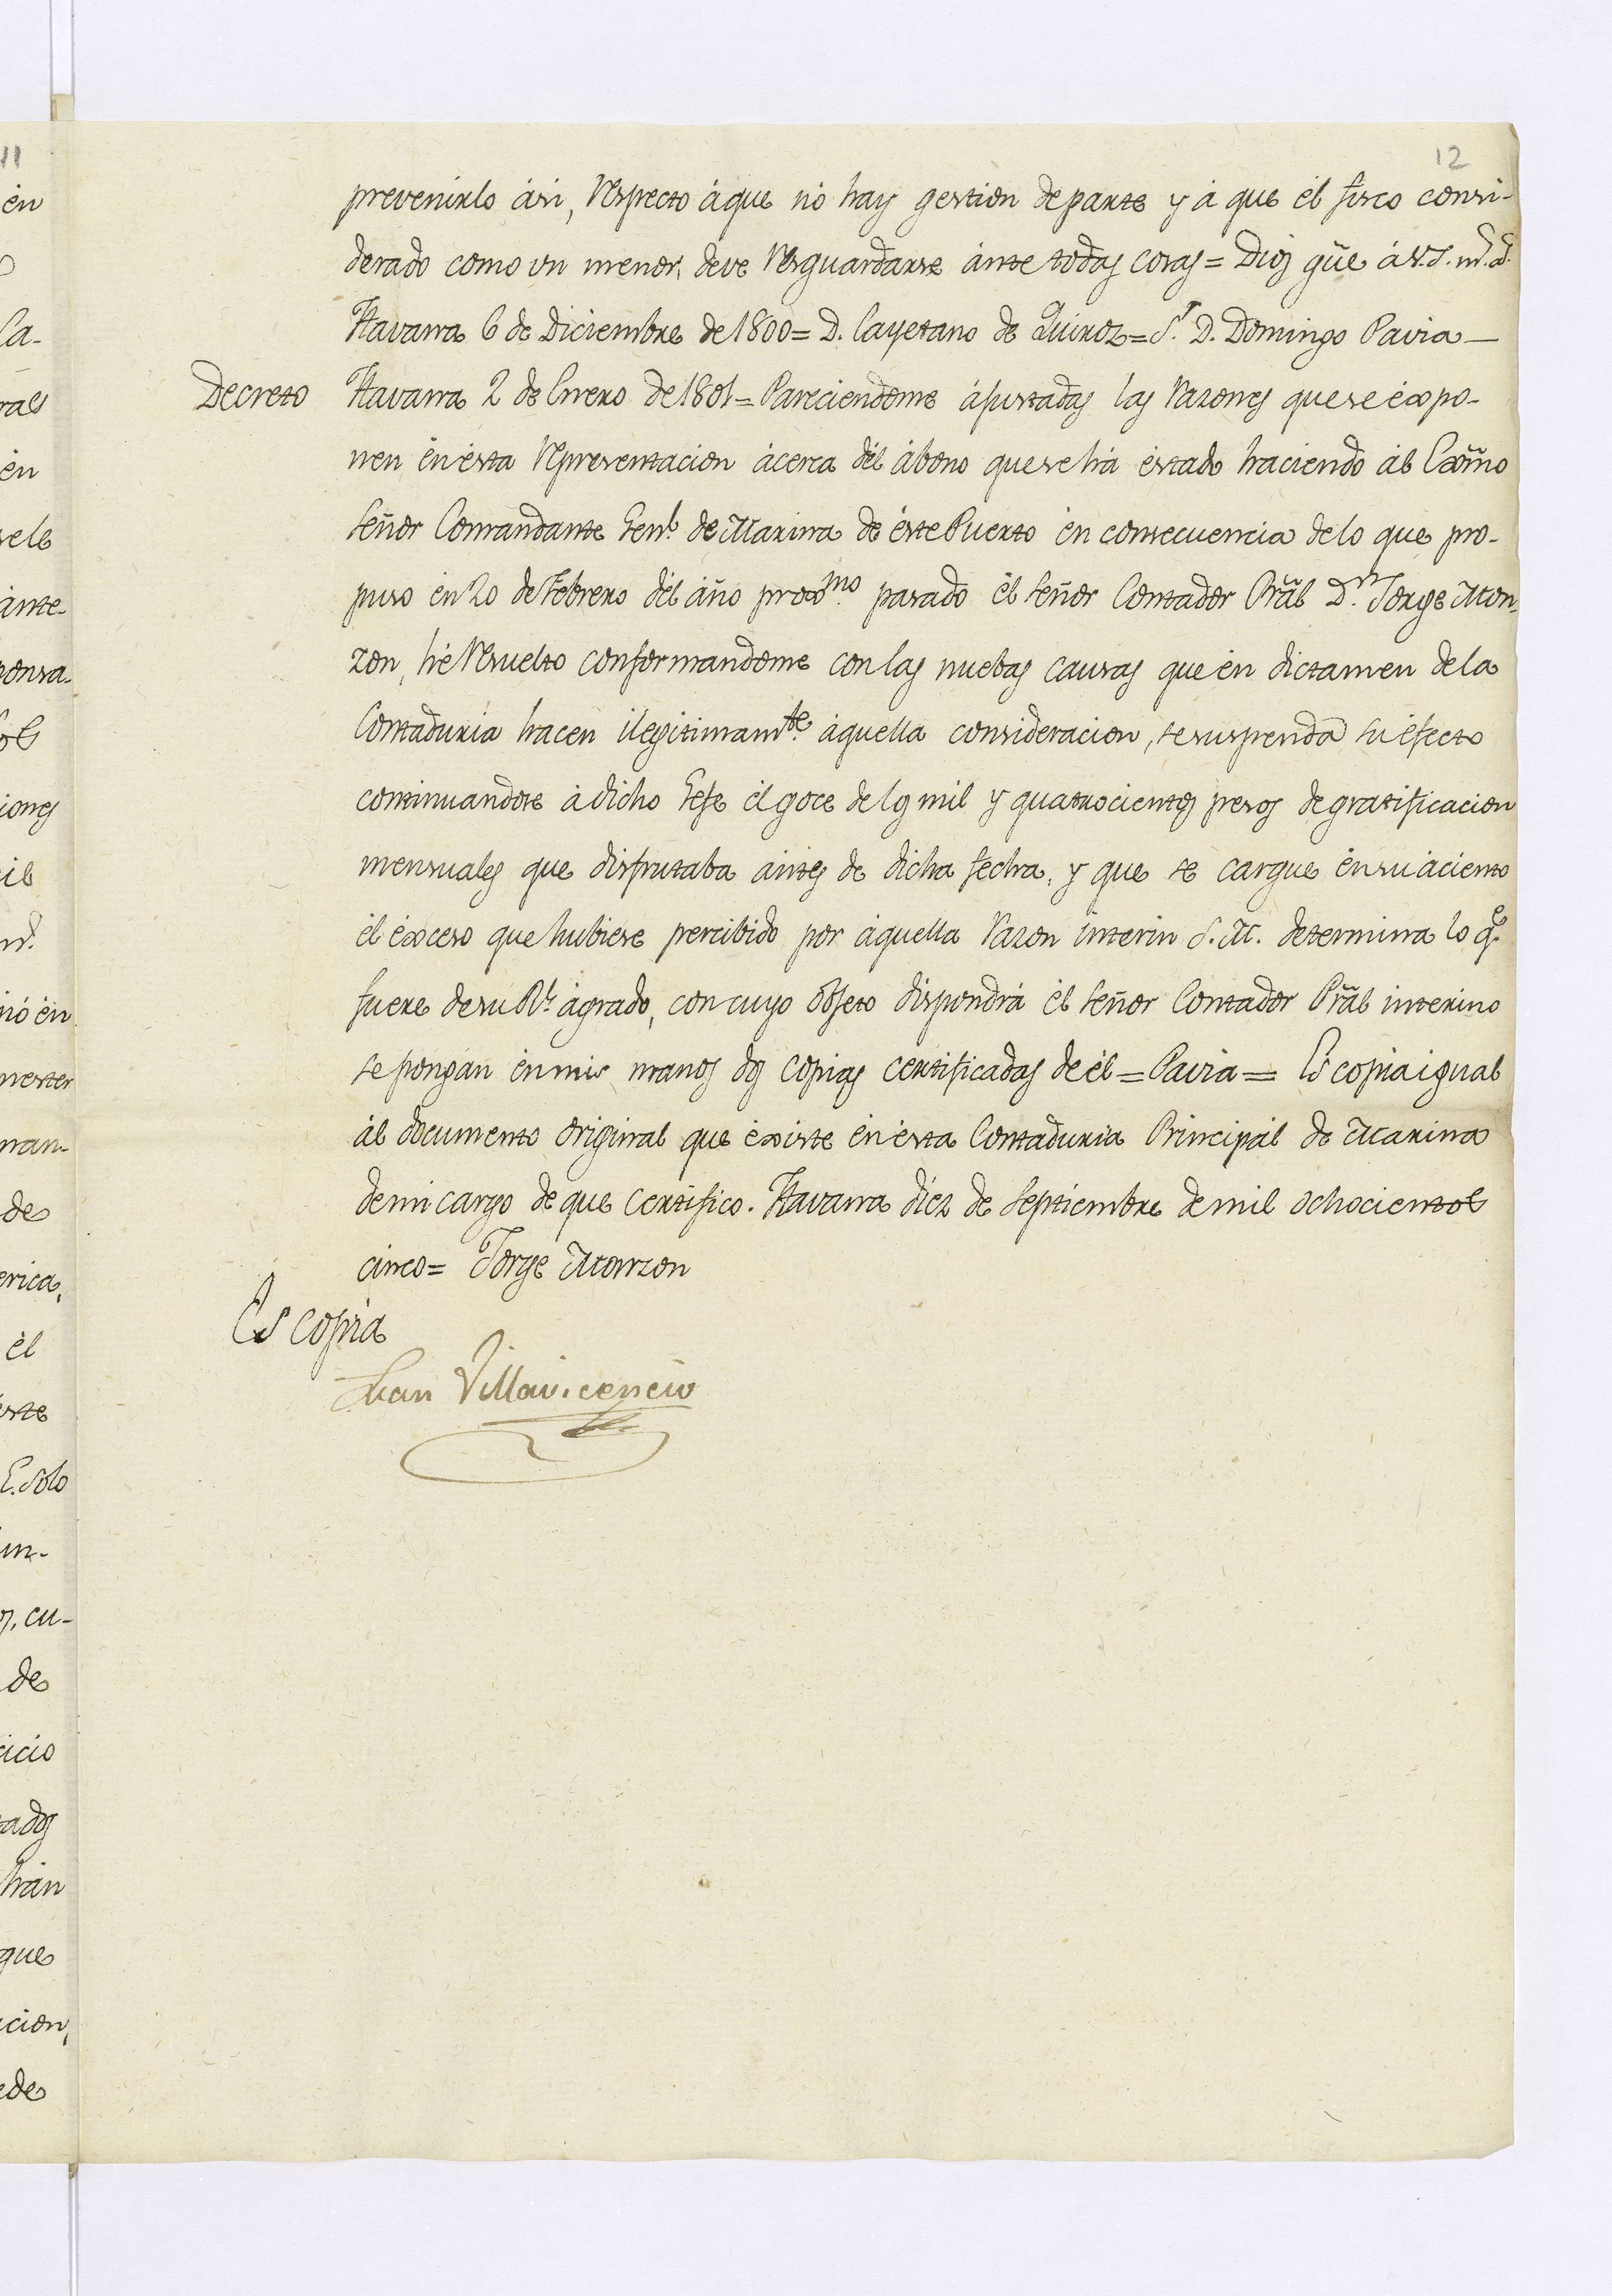 12
prevenirlo ási, respecto á que nó hay gestion de parte y á que él fisco consi-
derado como un menor, deve resguardarse ánte todas cosas = Dios gũe á V.S. m.s a.s
Havana 6 de Diciembre de 1800 = D. Cayetano de Quiroz = S.r D. Domingo Pavia —
Decreto Havana 2 de Enero de 1801 = Pareciendome ájustadas las razones que se éxpo-
nen én ésta representacion ácerca dél ábono que se há éstado haciendo ál Exm̃o
Señor Comandante Gen.l de Marina de éste Puerto én consecuencia de lo que pro-
puso én 20 de Febrero dél áño prox.mo pasado él Señor Contador Prãl D.n Jorge Mon-
zon, hé resuelto conformandome con las nuebas causas que én dictamen de la
Contaduria hacen ilegitimam.te áquella consideracion, se suspenda su éfecto
continuandose á dicho Gefe él goce de los mil y quatrocientos pesos de gratificacion
mensuales que disfrutaba ántes de dicha fecha, y que se cargue én su áciento
él éxceso que hubiese percibido por áquella razon interin S. M. determina lo q.e
fuere de su R.l ágrado, con cuyo objeto dispondrá él Señor Contador Prãl interino
se pongan én mis manos dos copias certificadas de él = Pavia = Es copia igual
ál documento original que éxiste én ésta Contaduria Principál de Marina
de mi cargo de que certifico. Havana diez de Septiembre de mil ochocientos
cinco = Jorge Monzon
Es copia
Juan Villavicencio